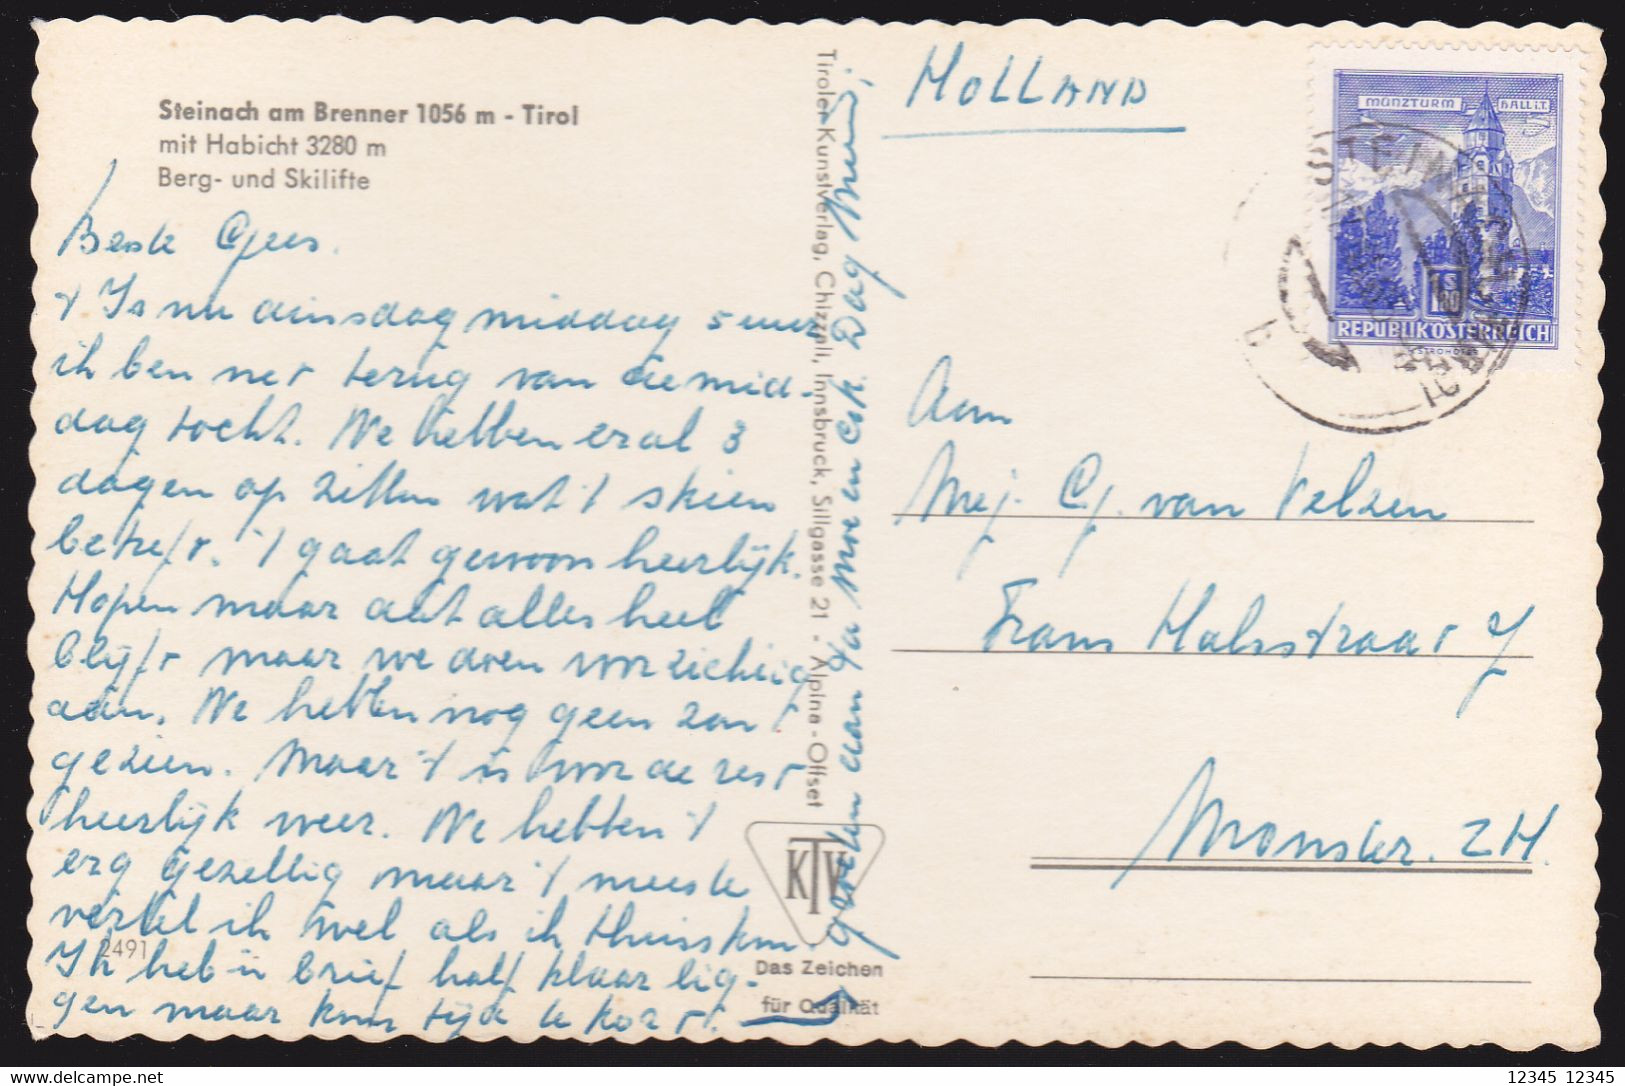 Steinach am Brenner 1056 m - Tirol
mit Habicht 3280 m
Berg- und Skilifte
Beste Gees.
't Is nu dinsdagmiddag 5 uur
ik ben net terug van de mid-
dag tocht. We hebben er al 3
dagen op zitten wat 't skien
betreft. 't gaat gewoon heerlijk.
Hopen maar dat alles heel
blijft maar we doen voorzichtig
aan. We hebben nog geen zon
gezien. Maar 't is voor de rest
heerlijk weer. We hebben 't
erg gezellig maar 't meeste
vertel ik wel als ik thuiskom.
Ik heb 'n brief half klaar lig-
gen maar kom tijd te kort.
groeten aan Pa Moe en Cok. Dag
2491
Tiroler Kunstverlag, Chizzali, Innsbruck, Sillgasse 21 - Alpina - Offset
KTV
Das Zeichen
für Qualität
HOLLAND
MÜNZTURM HALL i.T.
S 1.80
REPUBLIK ÖSTERREICH
STEINACH
b
Aan
Mej. G. van Velzen
Frans Halsstraat 7
Monster. Z H.
12345 12345